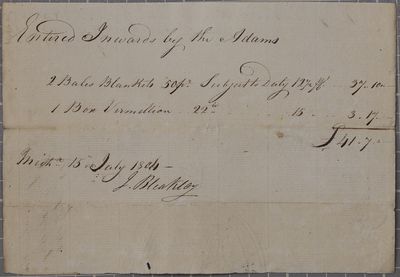 Entered Inwards by the Adams
2 Bales Blankets 50 ps. Subject to Duty 12½ pCt ... 37.10
1 Box Vermillion 22 lb 15 ... 3.17
41.7
Mich: 15 July 1804 —
J. Bleakley